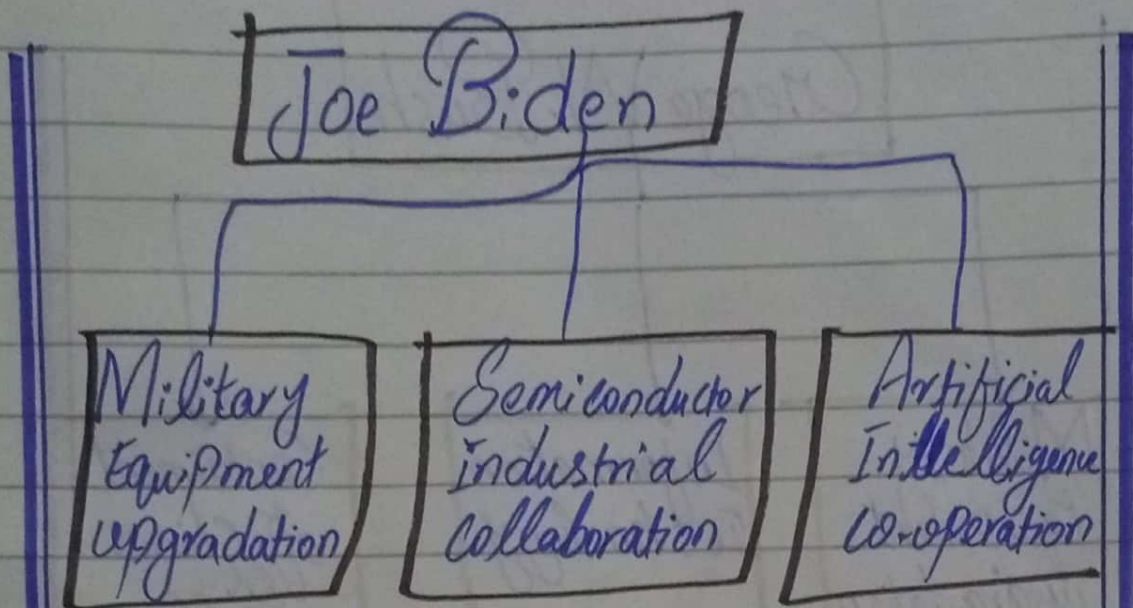 Joe Biden
Military
Equipment
upgradation
Semiconductor
industrial
collaboration
Artificial
Intelligence
co-operation